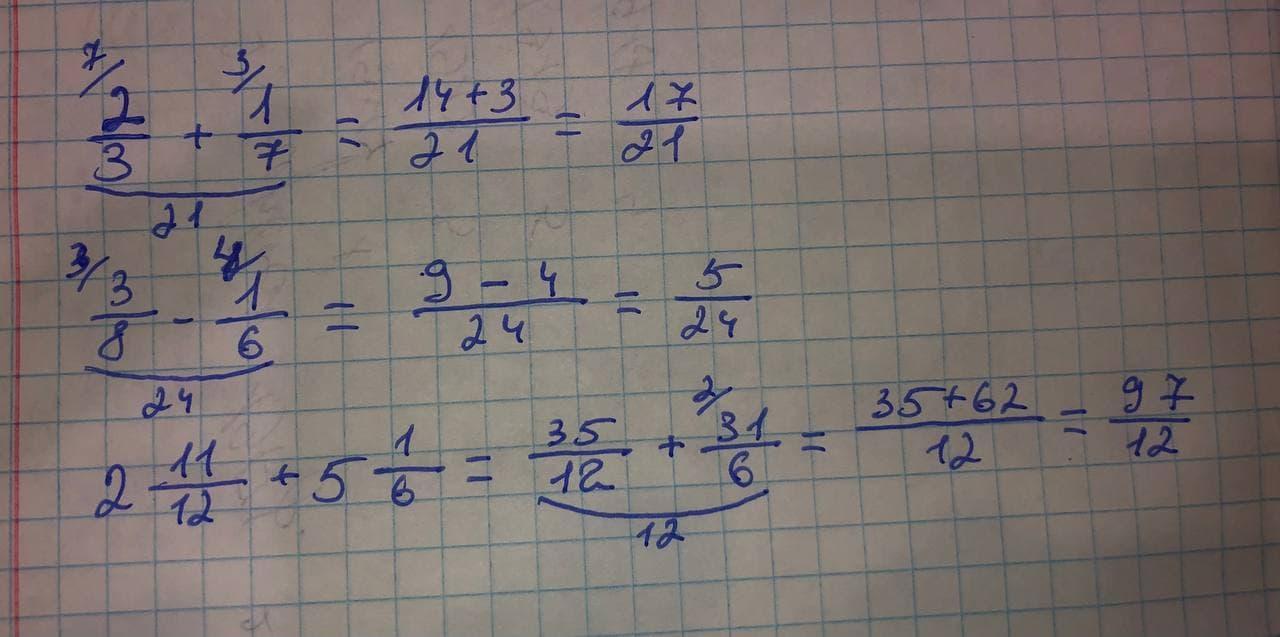 7/ 2/3 + 3/ 1/7 = (14+3)/21 = 17/21
21
3/ 3/8 - 4/ 1/6 = (9 - 4)/24 = 5/24
24
2 11/12 + 5 1/6 = 35/12 + 2/ 31/6 = (35+62)/12 = 97/12
12